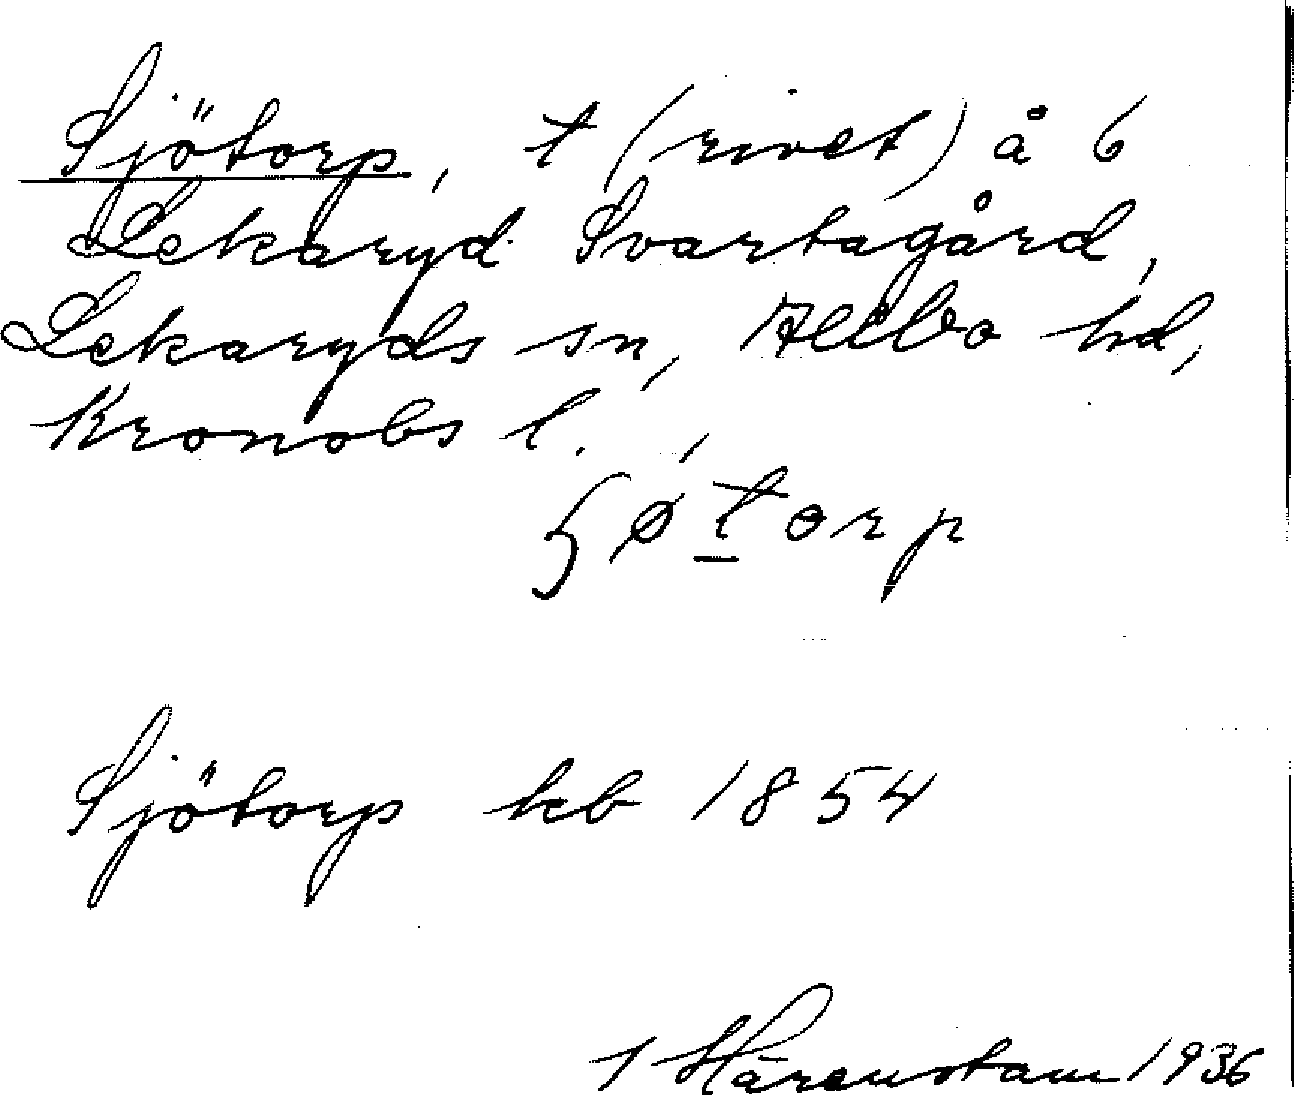 Sjötorp, t (rivet) å 6
Lekaryd Svartagård,
Lekaryds sn, Allbo hd,
Kronobs l.
ɧø´torp
Sjötorp kb 1854
Härenstam 1936